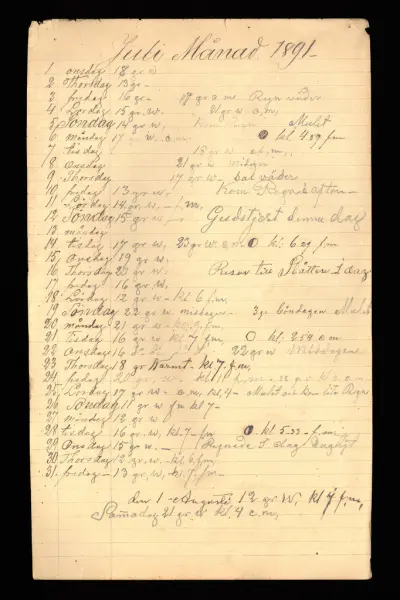 Juli Månad 1891-
1 onsdag 18 gr w
2 Thorsdag 13 gr-
3 fredag 16 gr- 17 gr e m Regn wäder
4 Lördag 15 gr. w. 21 gr w e, m,
5 Söndag 14 gr w, Kom Regn Mulit
6 måndag 17 w. e.m. kl 4 39 f m
7 tisdag 15 gr w ef, m,
8 onsdag 21 gr w midagen
9 Thorsdag 17 gr w- bal wäder
10 fredag 13 gr w Kom Regn i afton-
11 Lördag 14 gr, w, - f m,
12 Söndag 15 gr w, - denna dag
13 måndag
14 tisdag 17 gr w, 23 gr w e. m kl 6 29 f m
15 Onsdag 19 gr w.
16 Thorsdag 20 gr w- i dag
17 fredag 16 gr w,
18 Lördag 12 gr w - kl 6 f m,
19 Söndag 22 gr w midagen- 3je Böndagen Mulit
20 måndag 21 gr w - kl 5, f m,
21 tisdag 16 gr w kl 7 f m, kl, 2 54 e m
22 Onsdag 16 22 gr w Midagen
23 Thorsdag 18 gr Warmt- kl 7, f, m,
24 fredag 20 gr, w-
25 Lördag 17 gr w- e m, kl, 4- Mulit
26 Söndag 11 gr w f m kl 7-
27 måndag 12 gr w
28 tisdag 16 gr w, kl 7- f m kl 5 33- f m-
29 Onsdag 15 gr w.- Regnade i dag
30 Thorsdag 12 gr. w.- kl, 6 f, m,
31. fredag- 13 gr, w, kl, 7. f m-
den 1- Augusti 12 gr w, kl 7 f, m,
Samadag 21 gr. w kl, 4 e m,